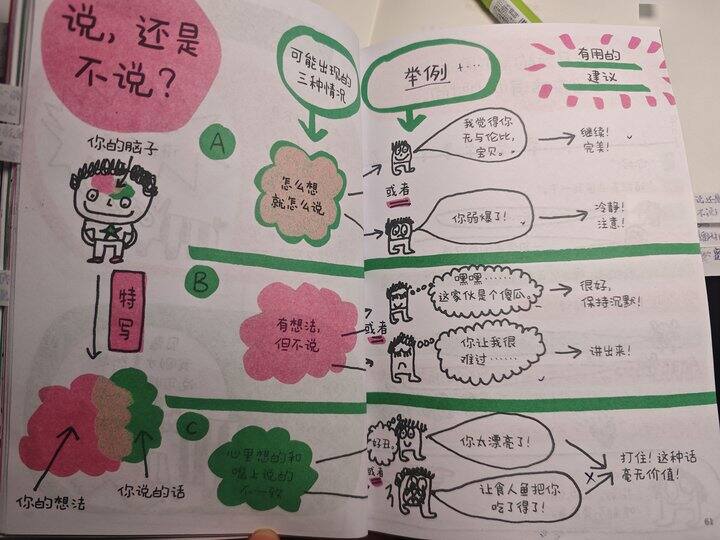 说，还是
不说？
可能出现的
三种情况
举例
有用的
建议
你的脑子
特写
你的想法
你说的话
A
怎么想
就怎么说
我觉得你
无与伦比，
宝贝。
继续！
完美！
或者
你弱爆了！
冷静！
注意！
B
有想法，
但不说
嘿嘿……
这家伙是个傻瓜。
很好，
保持沉默！
或者
你让我很
难过……
讲出来！
C
心里想的和
嘴上说的
不一致
好丑。
你太漂亮了！
或者
让食人鱼把你
吃了得了！
打住！这种话
毫无价值！
61